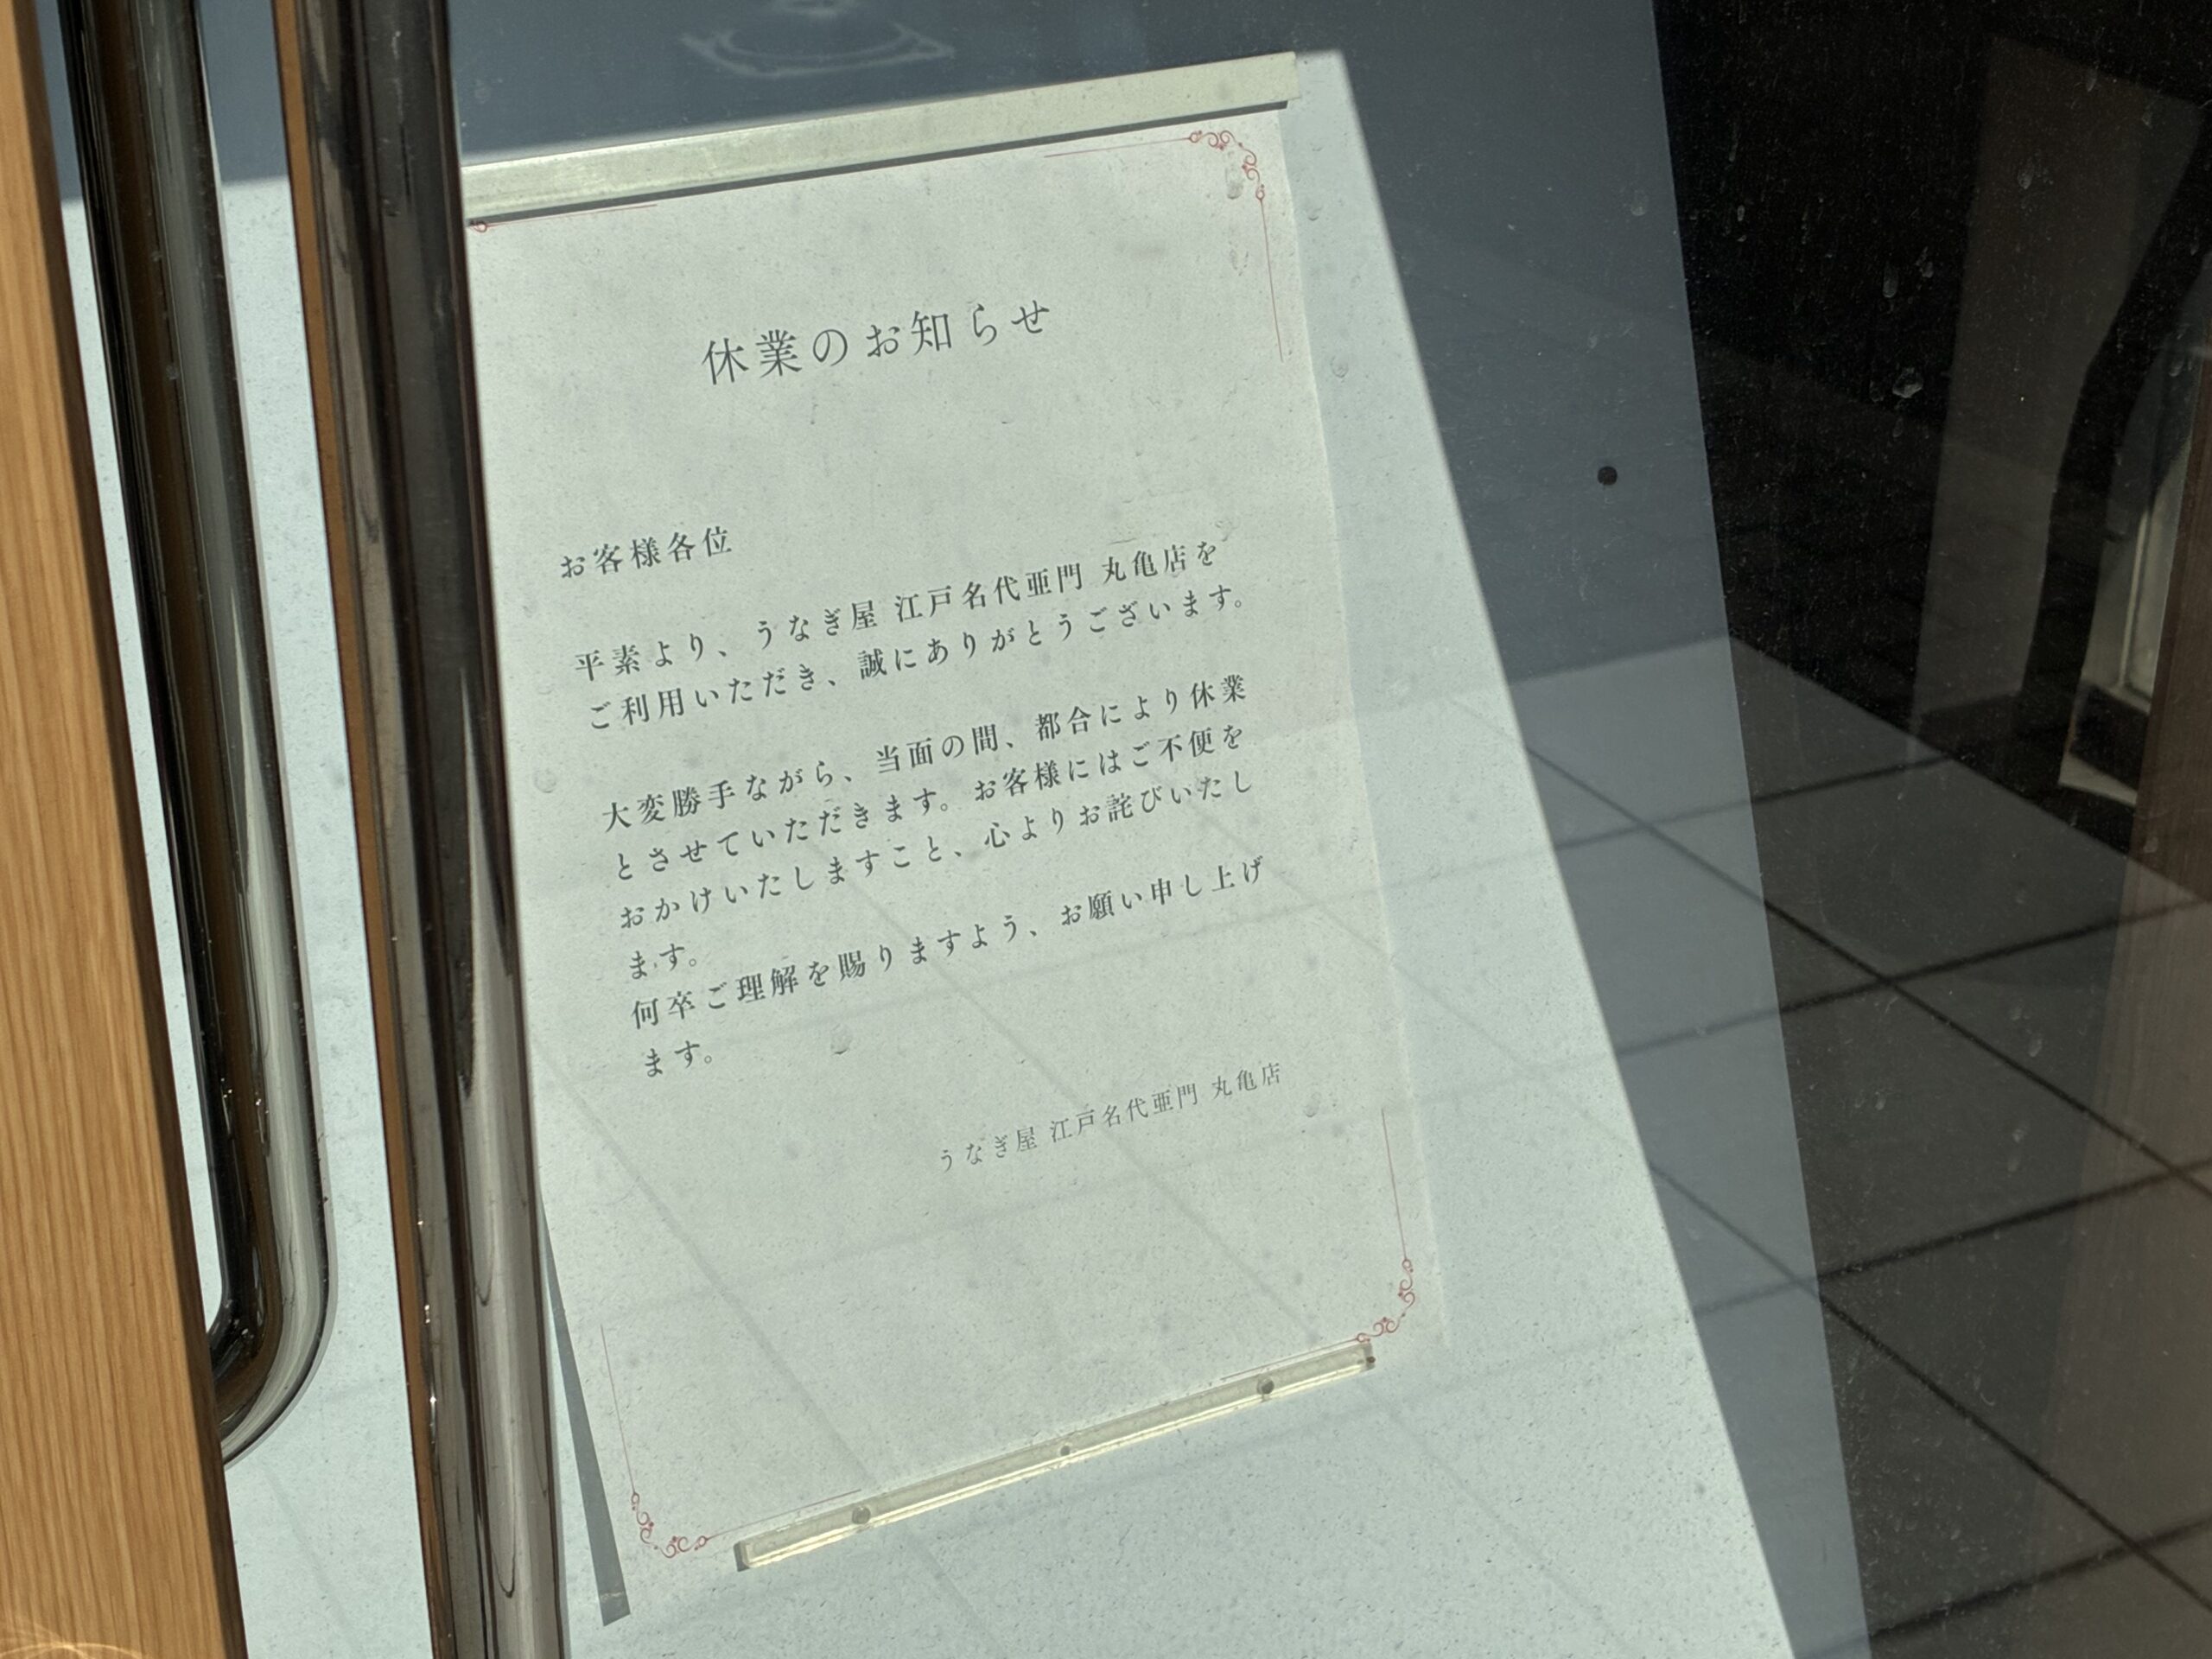 休業のお知らせ
お客様各位
平素より、うなぎ屋 江戸名代亜門 丸亀店を
ご利用いただき、誠にありがとうございます。
大変勝手ながら、当面の間、都合により休業
とさせていただきます。お客様にはご不便を
おかけいたしますこと、心よりお詫びいたし
ます。
何卒ご理解を賜りますよう、お願い申し上げ
ます。
うなぎ屋 江戸名代亜門 丸亀店